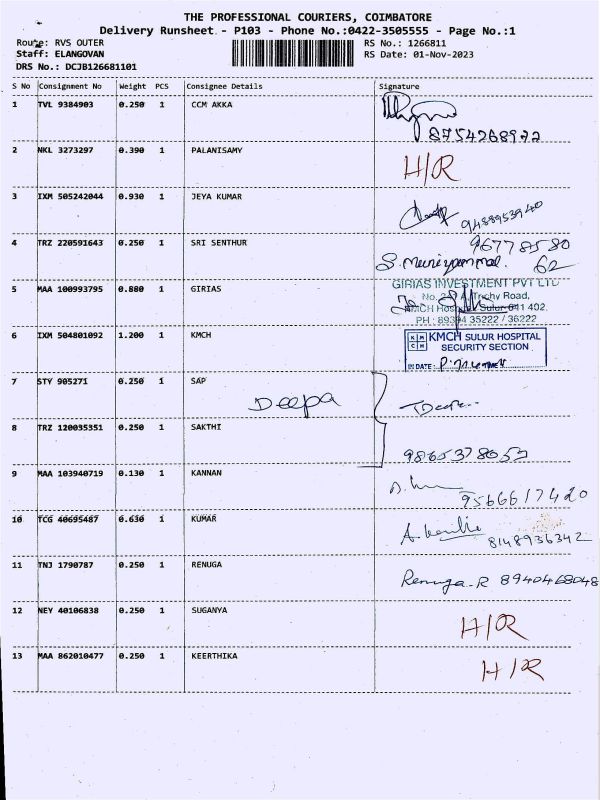 THE PROFESSIONAL COURIERS, COIMBATORE
Delivery Runsheet - P103 - Phone No.:0422-3505555 - Page No.:1
Route: RVS OUTER RS No.: 1266811
Staff: ELANGOVAN RS Date: 01-Nov-2023
DRS No.: DCJB126681101
S No Consignment No Weight PCS Consignee Details Signature
1 TVL 9384903 0.250 1 CCM AKKA
8754268972
2 NKL 3273297 0.390 1 PALANISAMY H/R
3 IXM 505242044 0.930 1 JEYA KUMAR
9488953940
4 TRZ 220591643 0.250 1 SRI SENTHUR
S. Muniyammal. 62
5 MAA 100993795 0.880 1 GIRIAS
GIRIAS INVESTMENT PVT LTD
Trichy Road,
Sulur-641 402.
35222 / 36222
6 IXM 504801092 1.200 1 KMCH
KMCH SULUR HOSPITAL
SECURITY SECTION
DATE :
7 STY 905271 0.250 1 SAP
Deepa
8 TRZ 120035351 0.250 1 SAKTHI
9865378053
9 MAA 103940719 0.130 1 KANNAN
9566617420
10 TCG 40695487 0.630 1 KUMAR
8148936342
11 TNJ 1790787 0.250 1 RENUGA
Renuga.R 8940468048
12 NEY 40106838 0.250 1 SUGANYA H/R
13 MAA 862010477 0.250 1 KEERTHIKA H/R